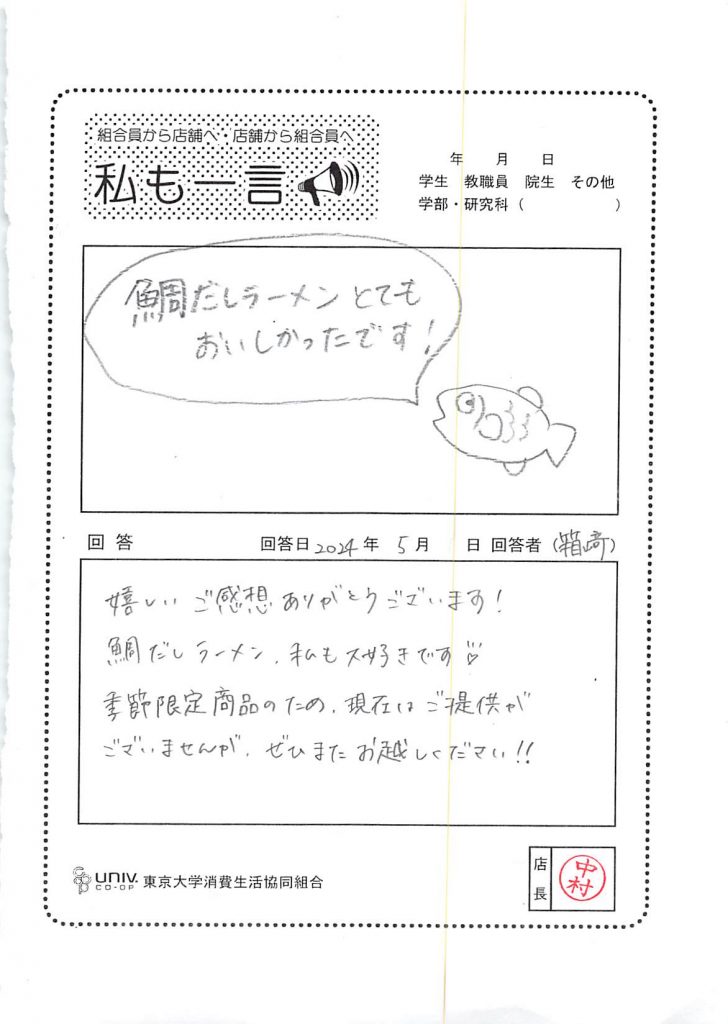 組合員から店舗へ・店舗から組合員へ
私も一言
年 月 日
学生 教職員 院生 その他
学部・研究科( )
鯛だしラーメンとても
おいしかったです!
回答 回答日 2024年 5月 日 回答者(箱崎)
嬉しいご感想ありがとうございます!
鯛だしラーメン、私も大好きです
季節限定商品のため、現在はご提供が
ございませんが、ぜひまたお越しください!!
UNIV. CO-OP 東京大学消費生活協同組合
店長
中村